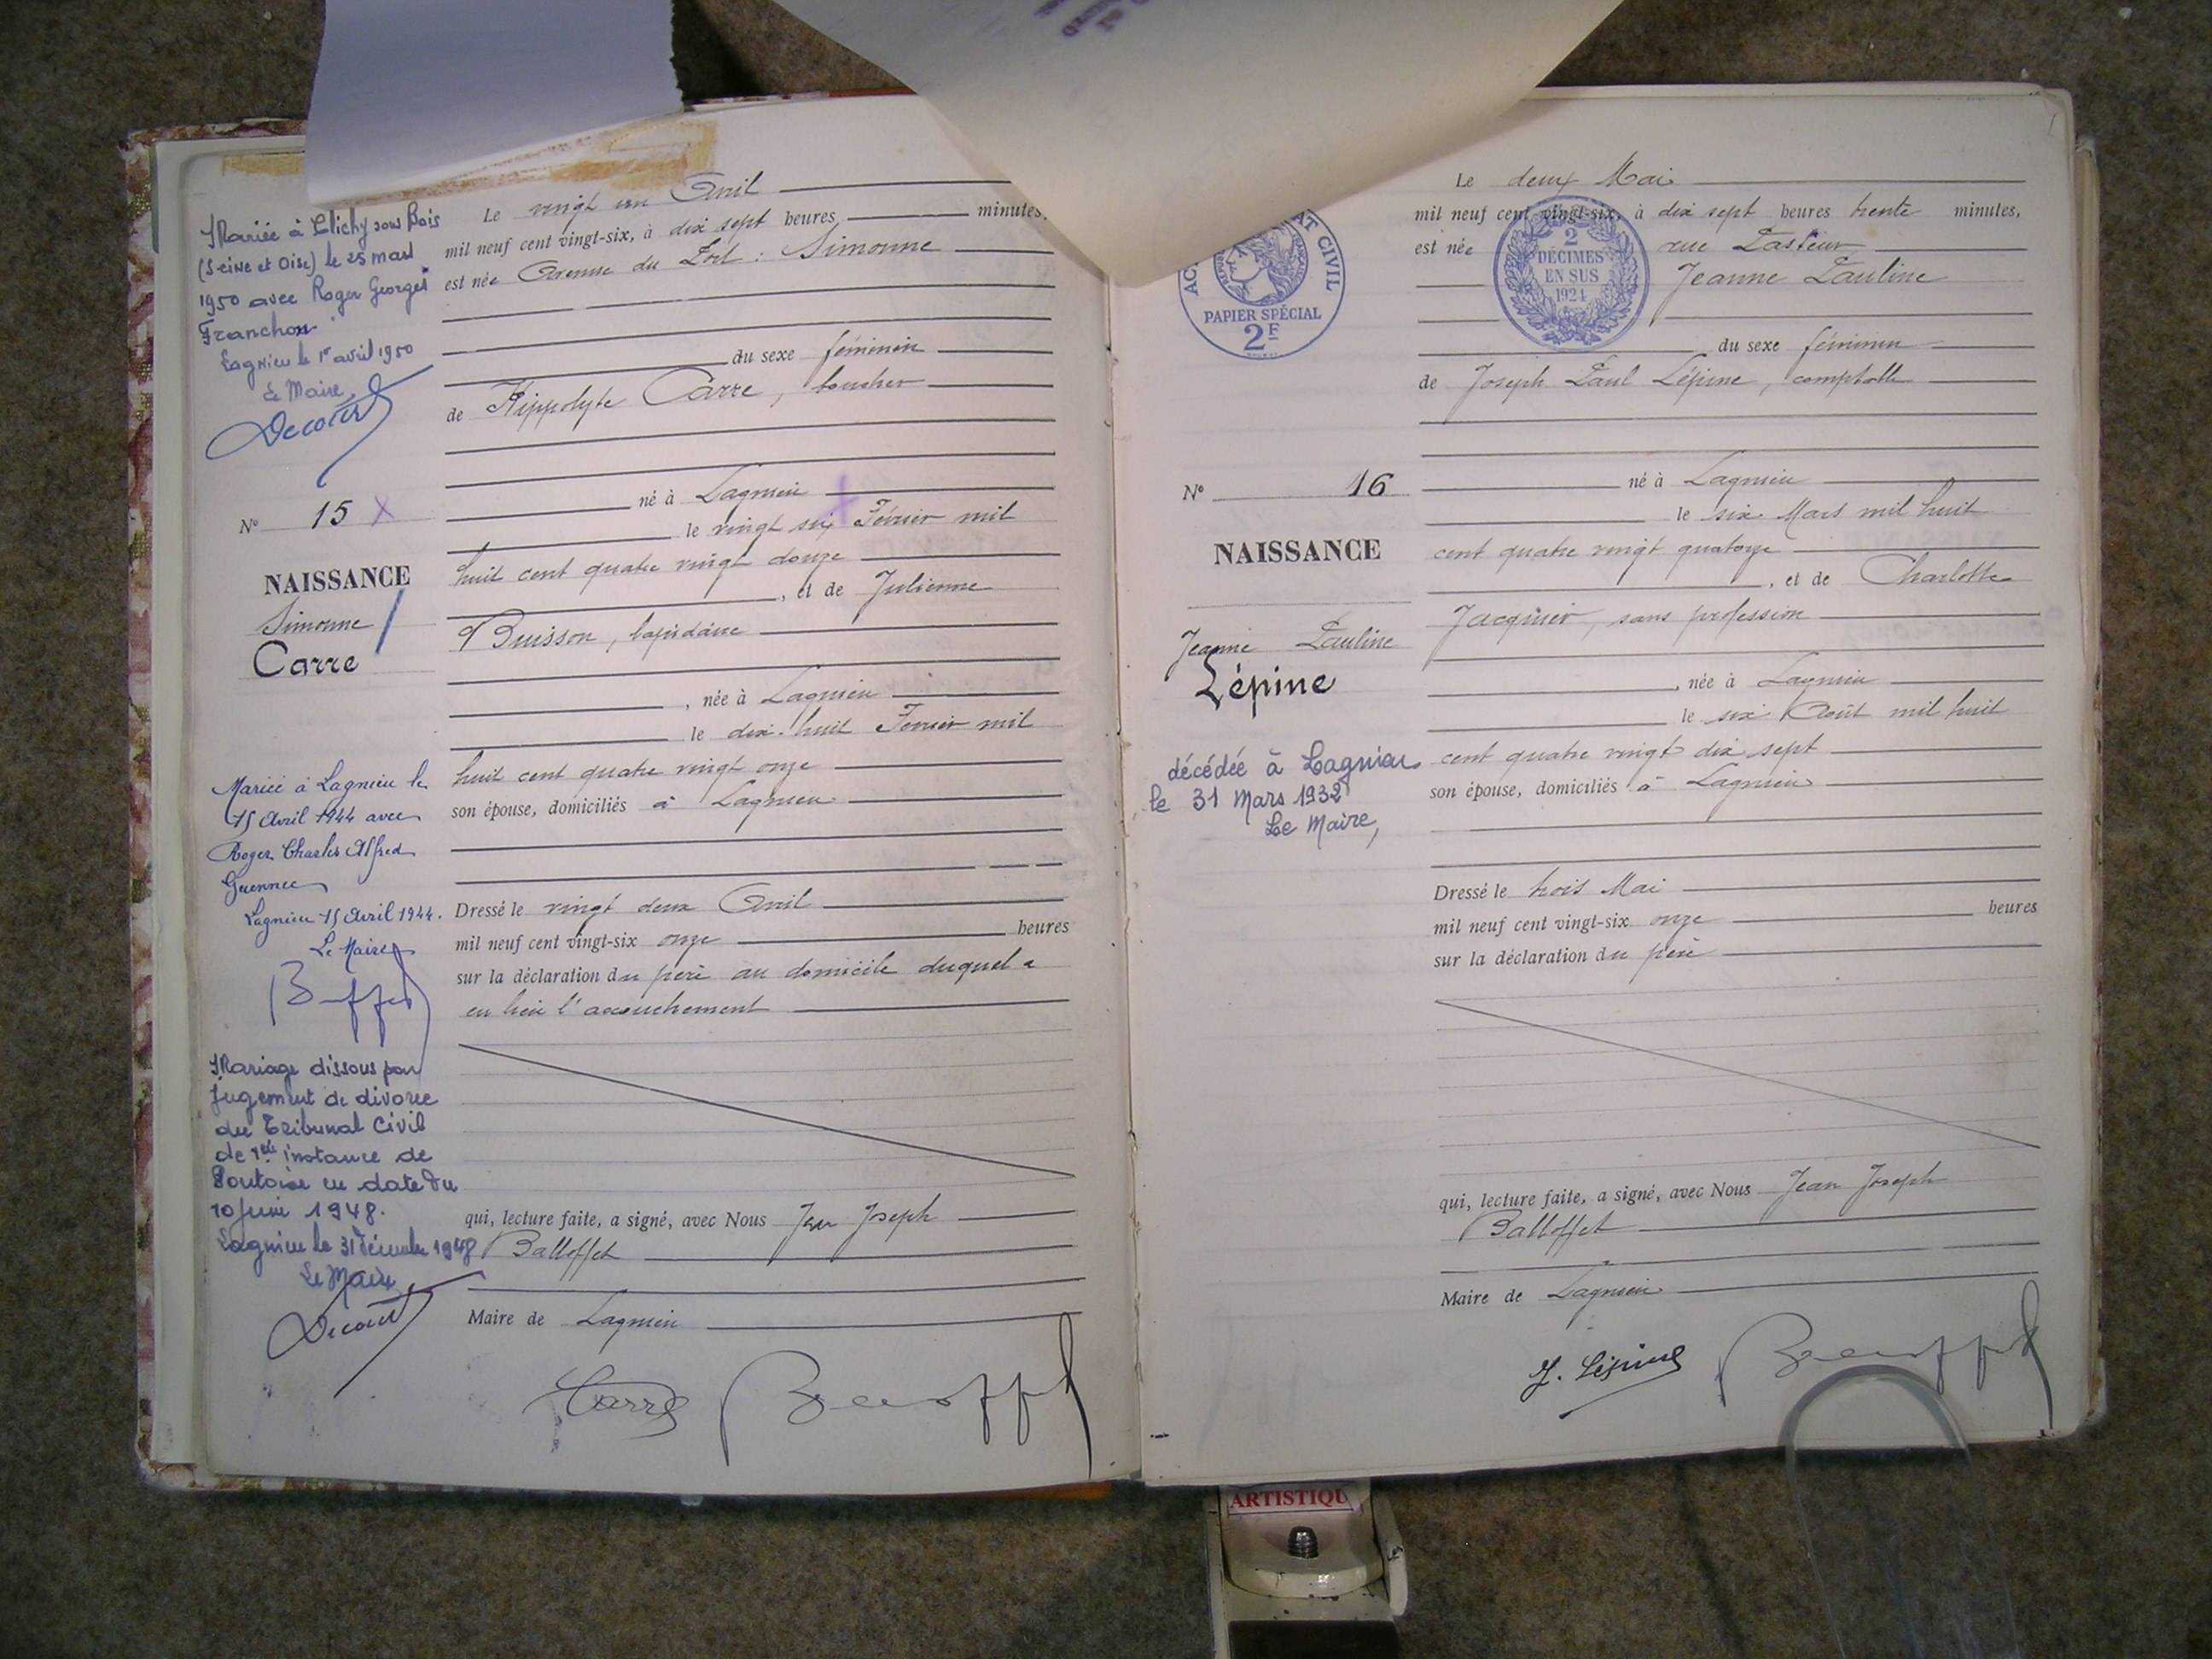 Mariée à Clichy sous Bois
(Seine et Oise) le 25 mars
1950 avec Roger Georges
Franchon
Lagnieu le 1er avril 1950
Le Maire,
Decourt
N° 15 X
NAISSANCE
Simonne
Carre
Mariée à Lagnieu le
15 Avril 1944 avec
Roger Charles Alfred
Guennec
Lagnieu 15 Avril 1944.
Le Maire
Mariage dissous par
jugement de divorce
du Tribunal Civil
de 1ère instance de
Pontoise en date du
10 Juin 1948.
Lagnieu le 31 décembre 1948
Le Maire
Decourt
Le vingt un Avril
mil neuf cent vingt-six, à dix sept heures minutes,
est née Avenue du Port : Simonne
du sexe féminin
de Hippolyte Carre, boucher
né à Lagnieu
le vingt six Février mil
huit cent quatre vingt douze
, et de Julienne
Buisson, lapidaire
, née à Lagnieu
le dix-huit Février mil
huit cent quatre vingt onze
son épouse, domiciliés à Lagnieu
Dressé le vingt deux Avril
mil neuf cent vingt-six onze heures
sur la déclaration du père au domicile duquel a
eu lieu l'accouchement
qui, lecture faite, a signé, avec Nous Jean Joseph
Balloffet
Maire de Lagnieu
Carre
ÉTAT CIVIL
PAPIER SPÉCIAL
2F
2
DÉCIMES
EN SUS
1924
N° 16
NAISSANCE
Jeanne Pauline
Lépine
décédée à Lagnieu
le 31 Mars 1932
Le Maire,
Le deux Mai
mil neuf cent vingt-six, à dix sept heures trente minutes,
est née rue Pasteur
Jeanne Pauline
du sexe féminin
de Joseph Paul Lépine, comptable
né à Lagnieu
le six Mars mil huit
cent quatre vingt quatorze
, et de Charlotte
Jacquier, sans profession
, née à Lagnieu
le six Août mil huit
cent quatre vingt dix sept
son épouse, domiciliés à Lagnieu
Dressé le trois Mai
mil neuf cent vingt-six onze heures
sur la déclaration du père
qui, lecture faite, a signé, avec Nous Jean Joseph
Balloffet
Maire de Lagnieu
J. Lépine
ARTISTIQU